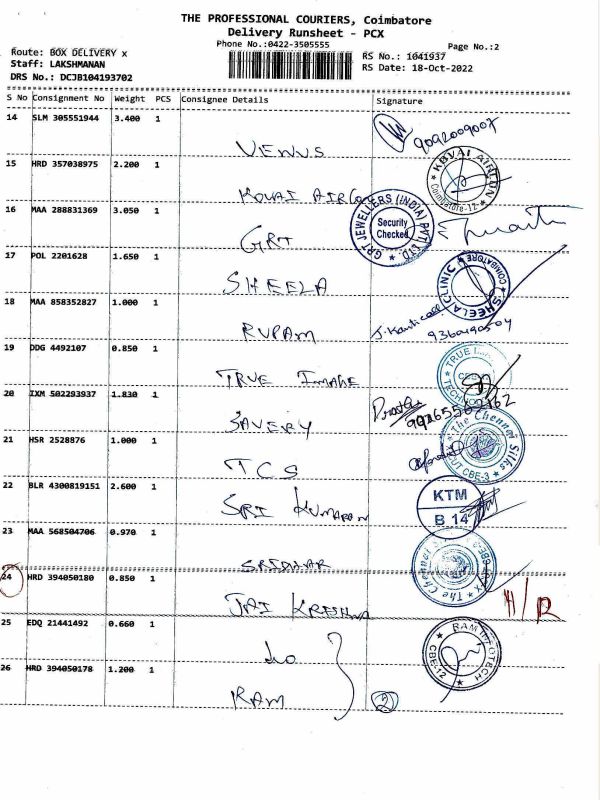 THE PROFESSIONAL COURIERS, Coimbatore
Delivery Runsheet - PCX
Phone No.:0422-3505555
Page No.:2
Route: BOX DELIVERY x
RS No.: 1041937
Staff: LAKSHMANAN
RS Date: 18-Oct-2022
DRS No.: DCJB104193702
S No Consignment No Weight PCS Consignee Details Signature
14 SLM 305551944 3.400 1
9092009007
VENUS
15 HRD 357038975 2.200 1
KOVAI AIRCO
KOVAI AIRCON
Coimbatore-12
16 MAA 288831369 3.050 1
GRT
GRT JEWELLERS (INDIA) PVT. LTD.
Security
Checked
17 POL 2201628 1.650 1
SHEELA
SHEELA CLINIC
COIMBATORE
18 MAA 858352827 1.000 1
RUPAM
19 DDG 4492107 0.850 1
TRUE IMAGE
TRUE
20 IXM 502293937 1.830 1
SAVERY
21 HSR 2528876 1.000 1
TCS
The Chennai Silks
CBE-3
22 BLR 4300819151 2.600 1
SRI KUMARAN
KTM
B 14
23 MAA 568504706 0.970 1
SRIDHAR
The Chennai
24 HRD 394050180 0.850 1
JAI KRISHNA
H/R
25 EDQ 21441492 0.660 1
RAM INFOTECH
CBE-12
26 HRD 394050178 1.200 1
RAM
2